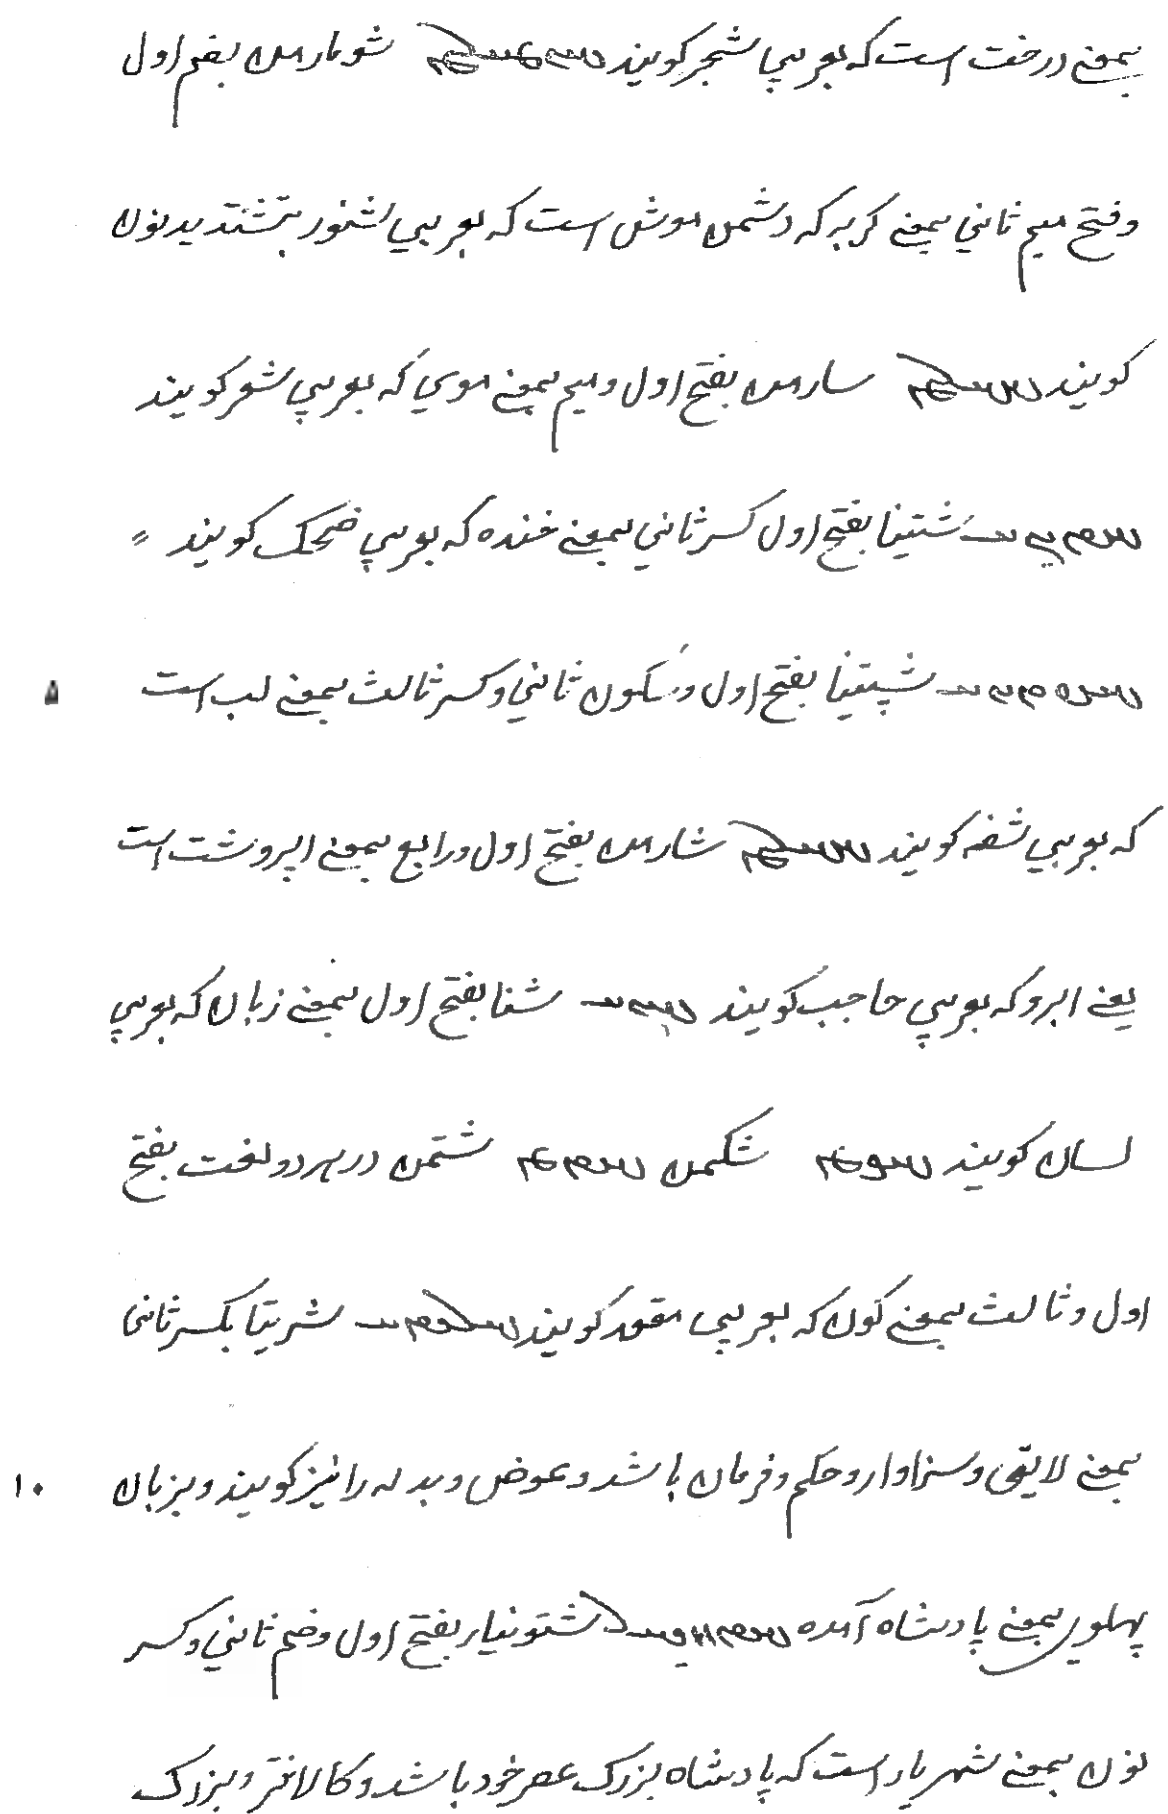 بمعنے درخت است که بعربي شجر کویند شومارمن بضم اول
وفتح میم ثاني بمعنے کربه که دشمن موش است که بعربي سنور بتشدید نون
کویند سارمن بفتح اول ومیم بمعنے موي که بعربي شعر کویند
شتینا بفتح اول کسر ثاني بمعنے خنده که بعربي ضحک کویند
شپتینا بفتح اول وسکون ثاني وکسر ثالث بمعنے لب است ۵
که بعربي شفه کویند شارمن بفتح اول ورابع بمعنے ابروشت است
یعنے ابرو که بعربي حاجب کویند شنا بفتح اول بمعنے زبان که بعربي
لسان کویند شکمن شتمن در هردو لغت بفتح
اول وثالث بمعنے کون که بعربي مقعد کویند شریتا بکسر ثاني
بمعنے لایق وسزاوار وحکم وفرمان باشد وعوض وبدله را نیز کویند وبزبان ۱۰
پهلوي بمعنے پادشاه آمده شتونیار بفتح اول وضم ثاني وکسر
نون بمعنے شهریار است که پادشاه بزرک عصر خود باشد وکالانتر وبزرک